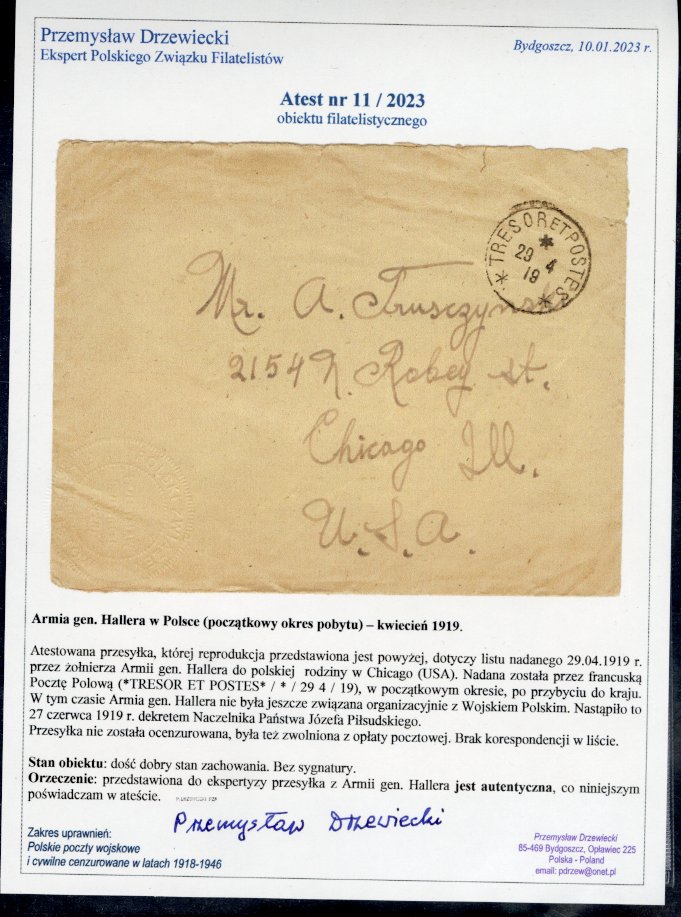 Przemysław Drzewiecki
Ekspert Polskiego Związku Filatelistów
Bydgoszcz, 10.01.2023 r.
Atest nr 11 / 2023
obiektu filatelistycznego
*TRESOR ET POSTES*
*
29 4
19
Mr. A. Trusczynski
2154 N. Robey st.
Chicago Ill.
U.S.A.
Armia gen. Hallera w Polsce (początkowy okres pobytu) – kwiecień 1919.
Atestowana przesyłka, której reprodukcja przedstawiona jest powyżej, dotyczy listu nadanego 29.04.1919 r.
przez żołnierza Armii gen. Hallera do polskiej rodziny w Chicago (USA). Nadana została przez francuską
Pocztę Polową (*TRESOR ET POSTES* / * / 29 4 / 19), w początkowym okresie, po przybyciu do kraju.
W tym czasie Armia gen. Hallera nie była jeszcze związana organizacyjnie z Wojskiem Polskim. Nastąpiło to
27 czerwca 1919 r. dekretem Naczelnika Państwa Józefa Piłsudskiego.
Przesyłka nie została ocenzurowana, była też zwolniona z opłaty pocztowej. Brak korespondencji w liście.
Stan obiektu: dość dobry stan zachowania. Bez sygnatury.
Orzeczenie: przedstawiona do ekspertyzy przesyłka z Armii gen. Hallera jest autentyczna, co niniejszym
poświadczam w ateście.
Przemysław Drzewiecki
Zakres uprawnień:
Polskie poczty wojskowe
i cywilne cenzurowane w latach 1918-1946
Przemysław Drzewiecki
85-469 Bydgoszcz, Opławiec 225
Polska - Poland
email: pdrzew@onet.pl